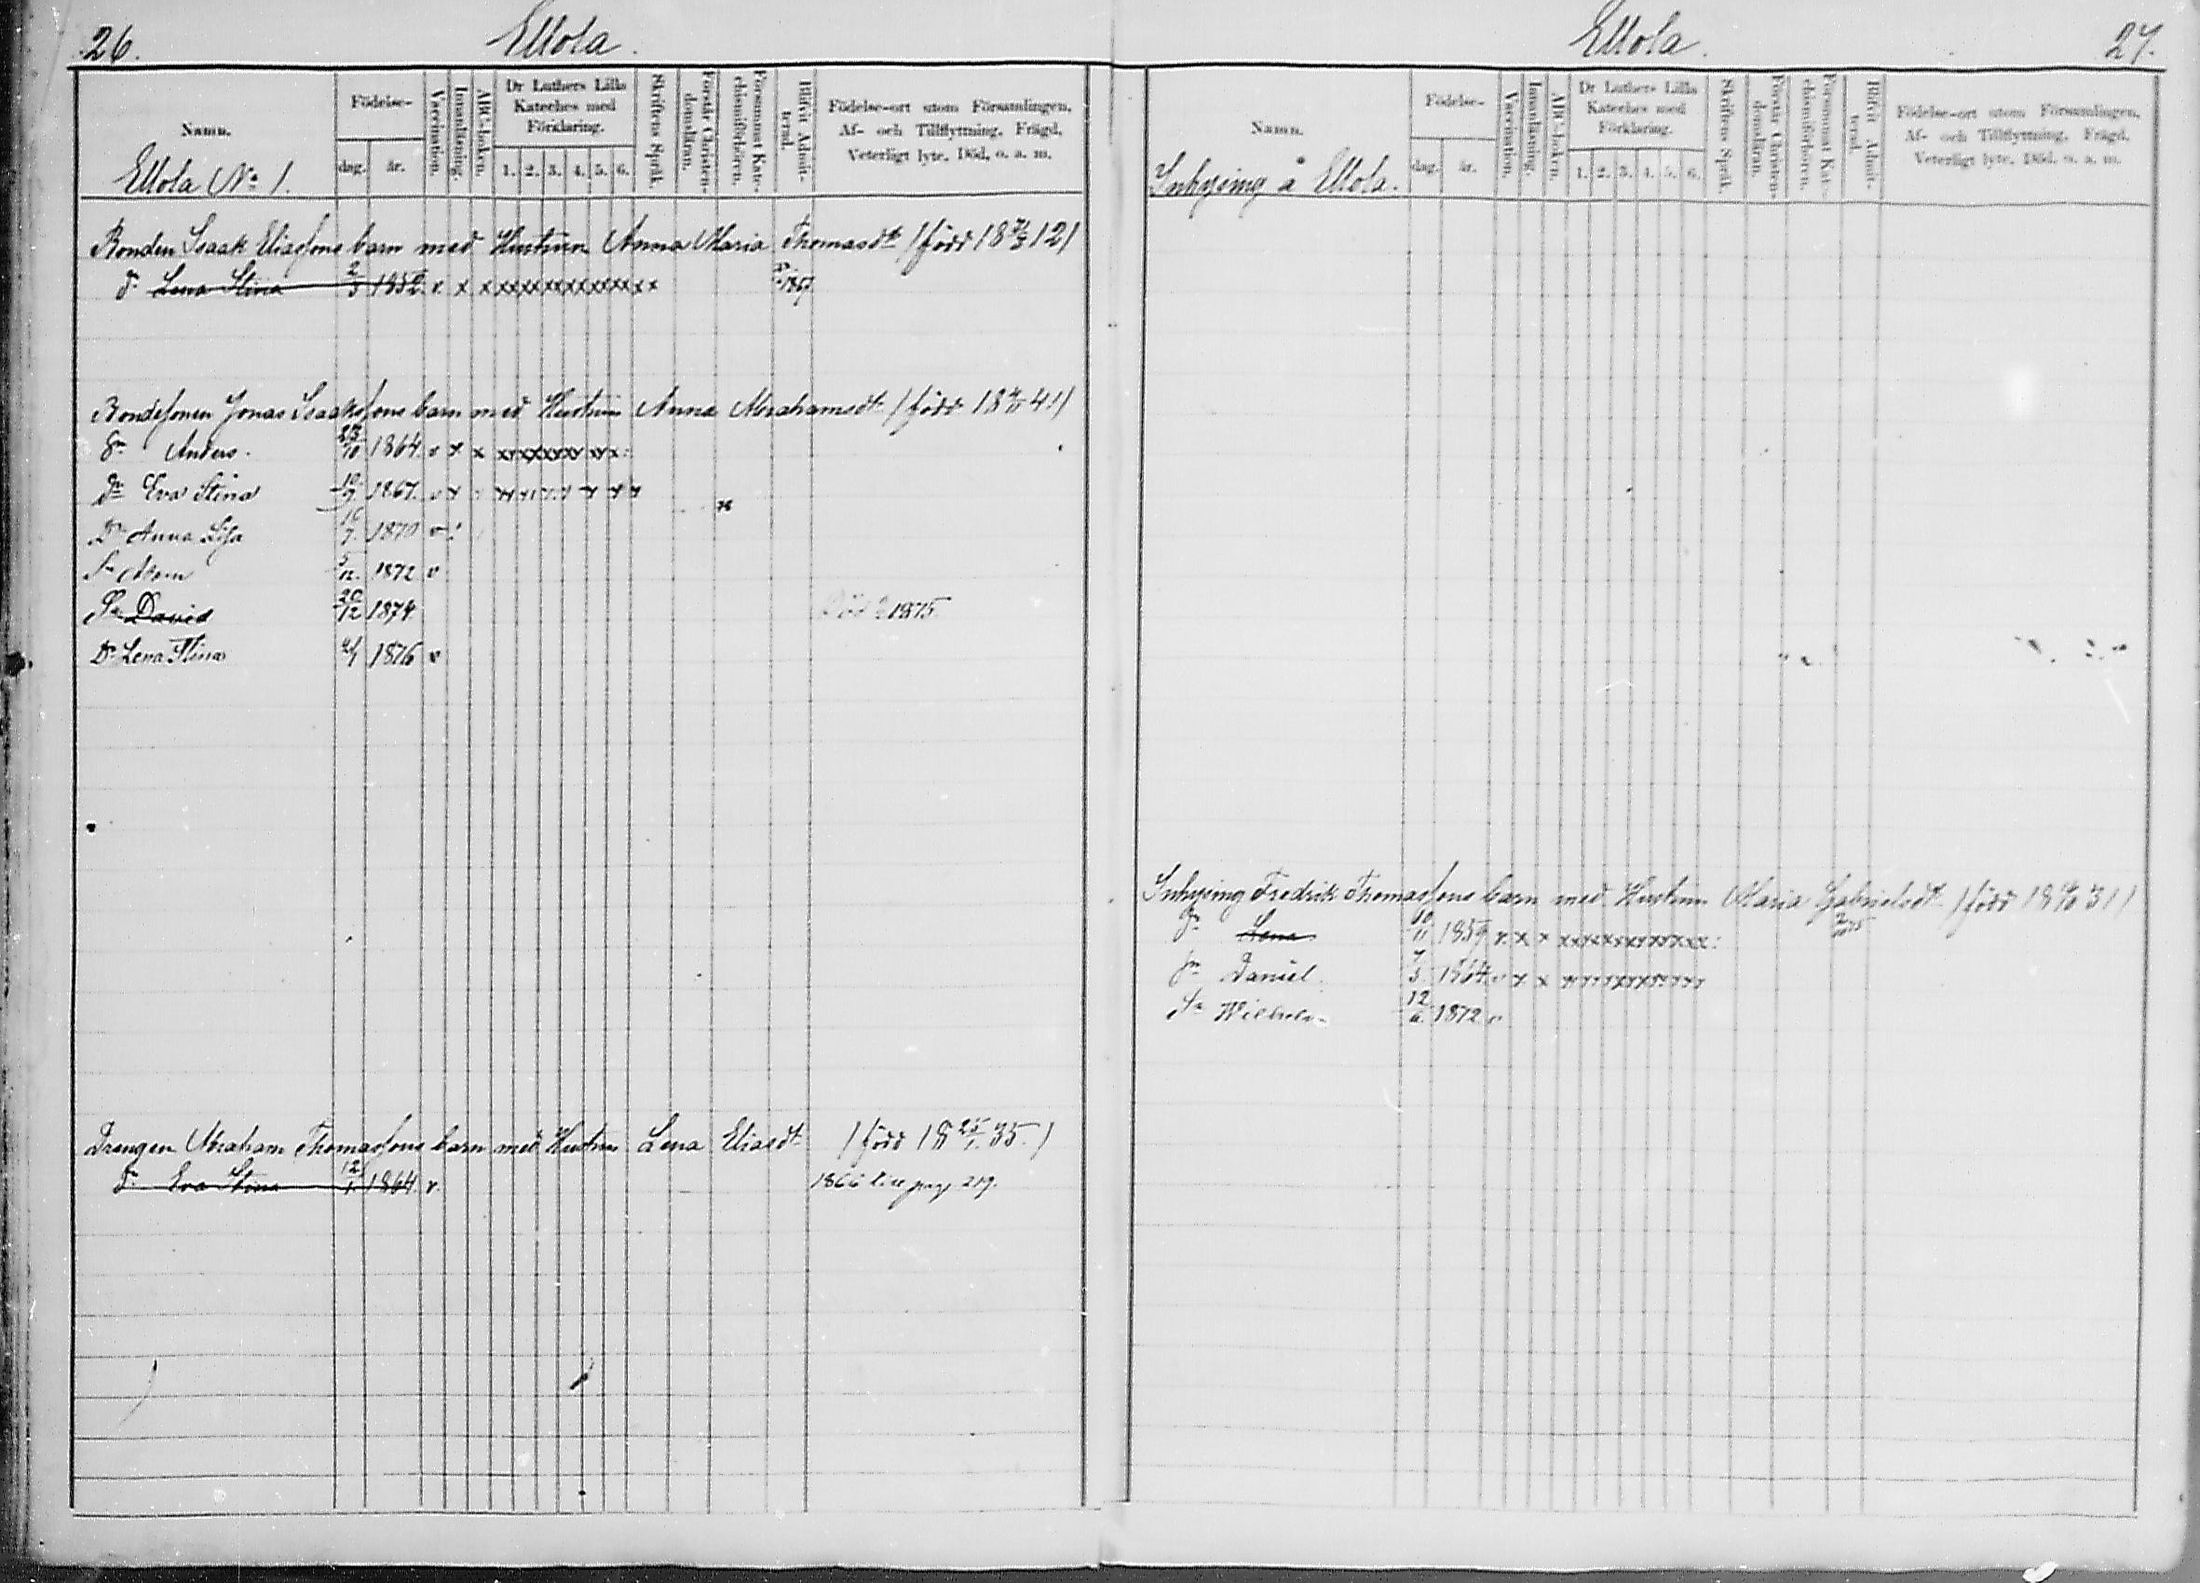 26.
Ellola.
Namn.
Födelse-
dag.
år.
Vaccination.
Innanläsning.
ABC-boken.
Dr Luthers Lilla
Kateches med
Förklaring.
1. 2. 3. 4. 5. 6.
Skriftens Språk.
Förstår Christen-
domsläran.
Försummat Kate-
chismiförhören.
Blifvit Admit-
terad.
Födelse-ort utom Församlingen.
Af- och Tillflyttning. Frägd.
Veterligt lyte. Död, o. a. m.
Ellola No 1.
Bonden Isaak Eliassons barn med Hustrun Anna Maria Thomasdt (född 18 12)
Dr Lena Stina 2/3 1852. v. x x xxxxxxxxxxxxx 1867
Bondesonen Jonas Isaakssons barn med Hustrun Anna Abrahamsdt (född 18 41)
Sn Anders. 23/10 1864. v x x xxxxxxxxx xxx
Dr Eva Stina 10/9. 1867. v x x x
Dr Anna Lisa 16/7. 1870 v
Sn 5/12. 1872 v
Sn David 20/12 1874. Död 1875.
Dr Lena Stina 1876 v
Drengen Abraham Thomassons barn med Hustrun Lena Eliasdt (född 18 25/1. 35.)
Dr Eva Stina 12/1. 1864. v. 1866 pag. 219.
Ellola.
27.
Namn.
Födelse-
dag.
år.
Vaccination.
Innanläsning.
ABC-boken.
Dr Luthers Lilla
Kateches med
Förklaring.
1. 2. 3. 4. 5. 6.
Skriftens Språk.
Förstår Christen-
domsläran.
Försummat Kat-
chismiförhören.
Blifvit Admit-
terad.
Födelse-ort utom Församlingen.
Af- och Tillflyttning. Frägd.
Veterligt lyte. Död. o. a. m.
Inhysing å Ellola.
Inhysing Fredrik Thomassons barn med Hustrun Maria Gabrielsdt (född 18 31)
Dr Lena 10/11 1859 v. x x xxxxxxxxxxxxx
Sn Daniel. 7/3 1864. v x x
Sn Wilhelm 12/6. 1872 v